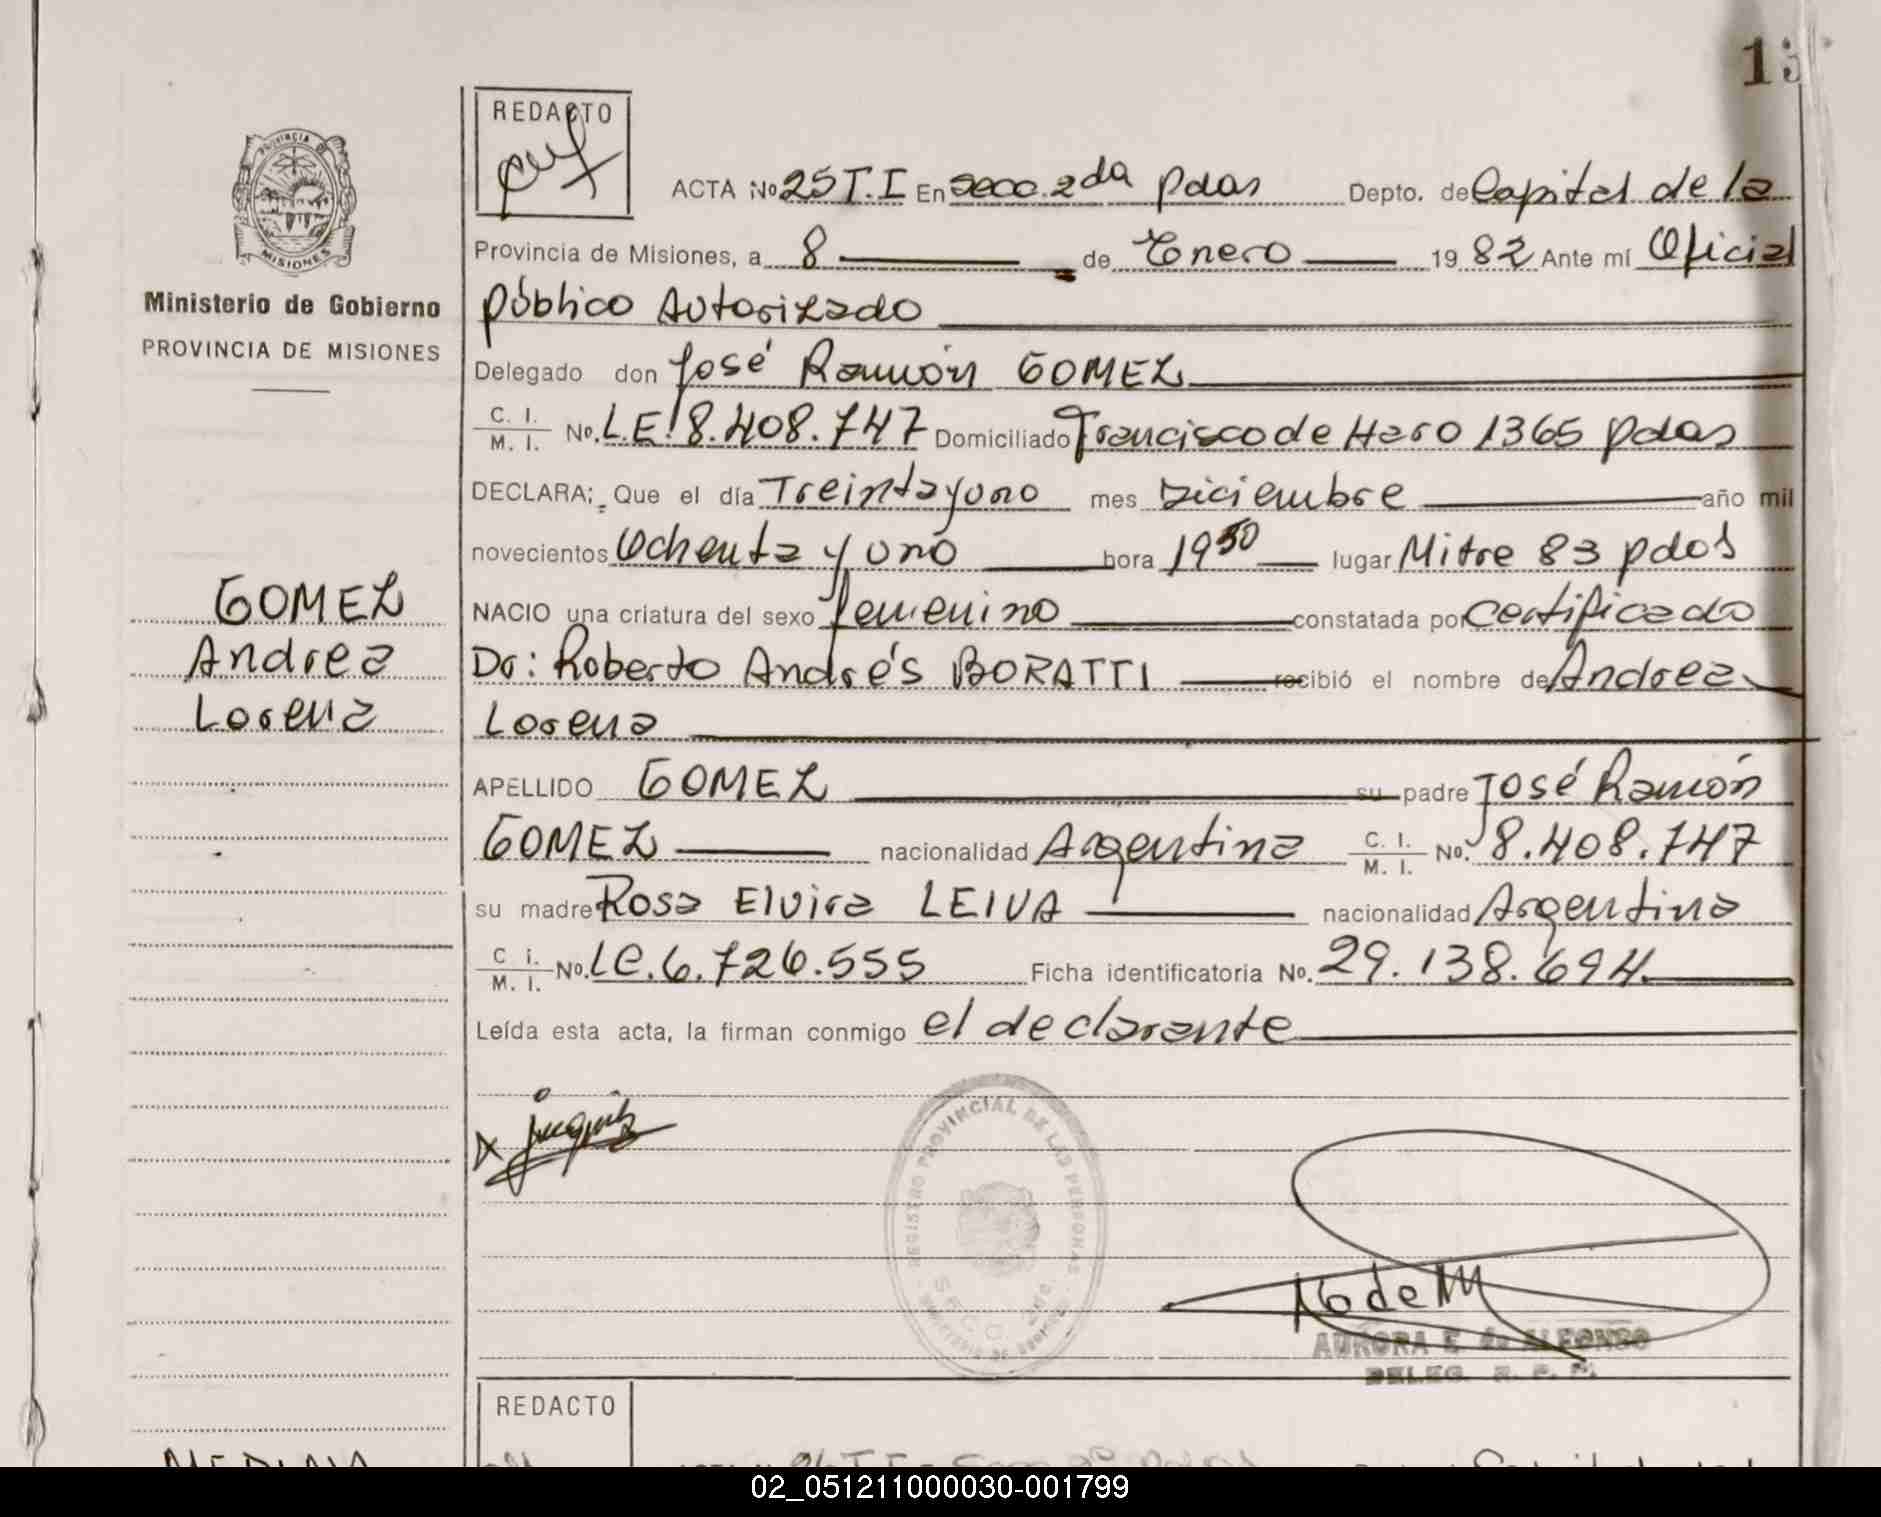 13
REDACTO
PROVINCIA DE
MISIONES
Ministerio de Gobierno
PROVINCIA DE MISIONES
ACTA No 25 T.I En secc. 2da Pdas Depto. de Capital de la
Provincia de Misiones, a 8 de Enero 1982 Ante mí Oficial
Público Autorizado
Delegado don José Ramón GOMEZ
C. I. / M. I. No. L.E. 8.408.747 Domiciliado Francisco de Haro 1365 Pdas
DECLARA: Que el día Treinta y uno mes Diciembre año mil
novecientos Ochenta y uno hora 19 50 lugar Mitre 83 Pdas
NACIO una criatura del sexo femenino constatada por Certificado
Dr: Roberto Andrés BORATTI recibió el nombre de Andrea
Lorena
GOMEZ
Andrea
Lorena
APELLIDO GOMEZ su padre José Ramón
GOMEZ nacionalidad Argentina C. I. / M. I. No. 8.408.747
su madre Rosa Elvira LEIVA nacionalidad Argentina
C i. / M. I. No. LE. 6.726.555 Ficha identificatoria No. 29.138.694
Leída esta acta, la firman conmigo el declarante
REGISTRO PROVINCIAL DE LAS PERSONAS
AURORA E de ALFONSO
DELEG. R. P. P.
REDACTO
MEDINA
02_051211000030-001799